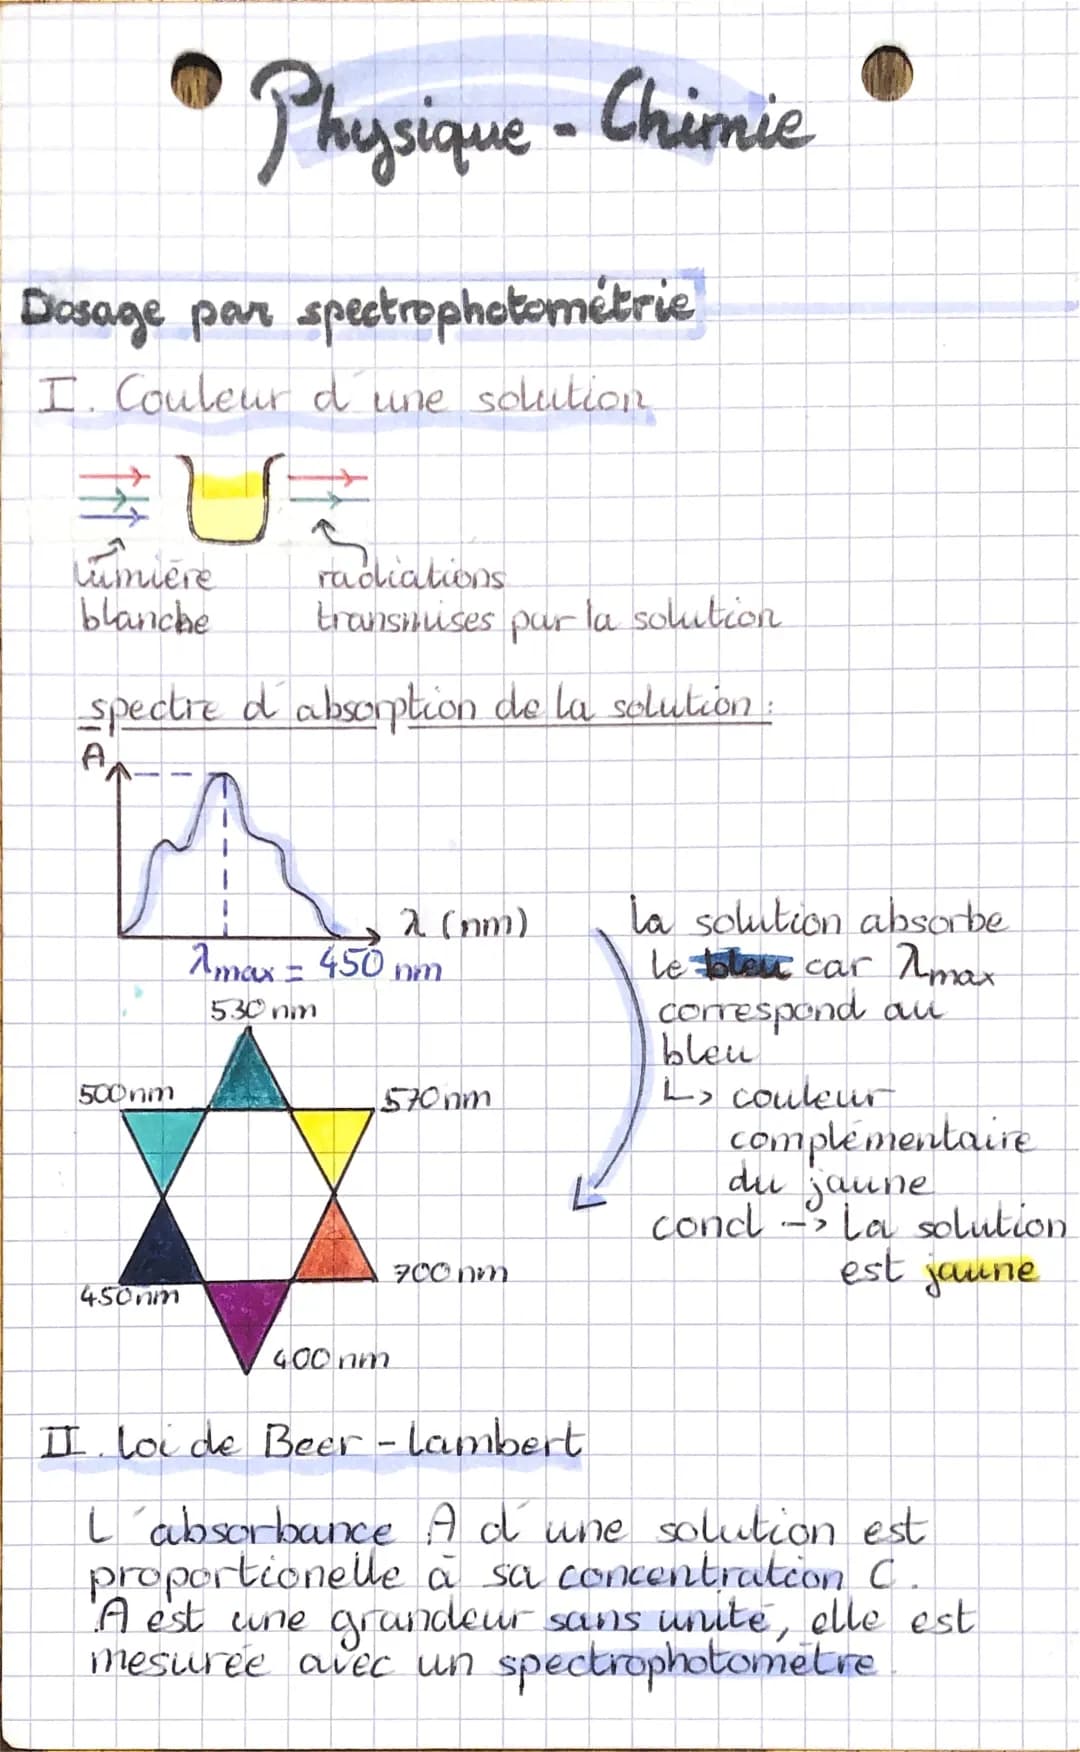 Physique - Chimie
Dosage par spectrophotométrie
I. Couleur d'une solution
lumière
blanche
radiations
transmises par la solution
spectre d'absorption de la solution :
A
λ (nm)
λmax = 450 nm
la solution absorbe
le bleu car λmax
correspond au
bleu
↳ couleur
complémentaire
du jaune
concl -> La solution
est jaune
530 nm
500 nm
570 nm
450 nm
700 nm
400 nm
II. loi de Beer - Lambert
L'absorbance A d'une solution est
proportionelle à sa concentration C.
A est une grandeur sans unité, elle est
mesurée avec un spectrophotomètre.